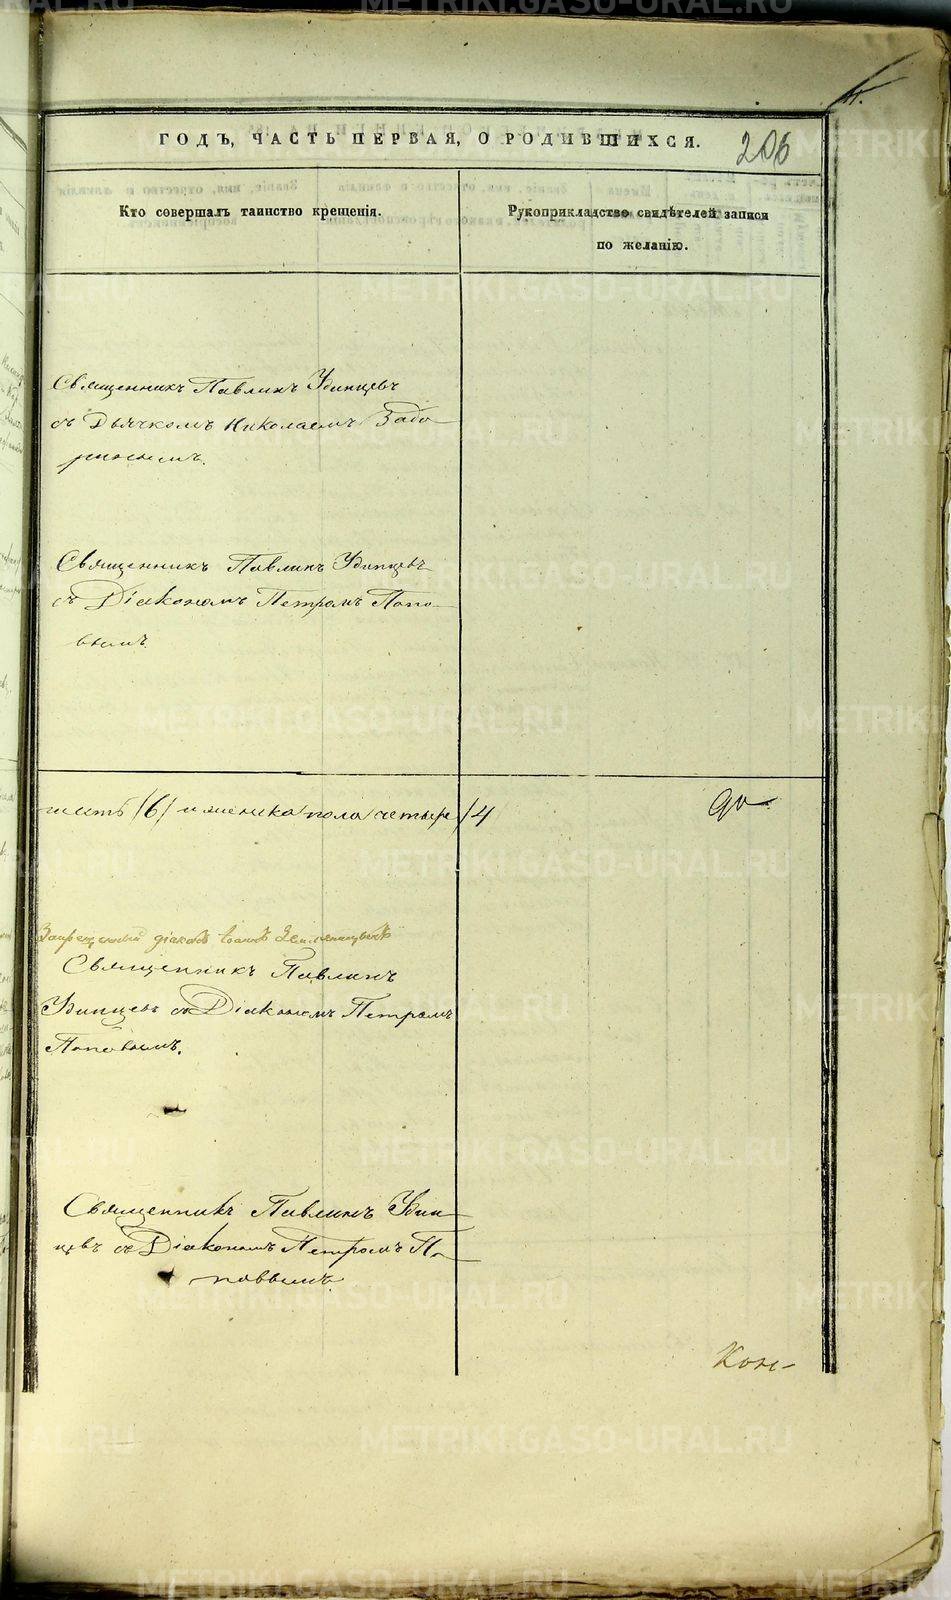 ГОДЪ, ЧАСТЬ ПЕРВАЯ, О РОДИВШИХСЯ.
206
Кто совершалъ таинство крещенія.
Рукоприкладство свидѣтелей записи
по желанію.
Священникъ Павлинъ Удинцевъ
съ Дьячкомъ Николаемъ
Священникъ Павлинъ Удинцевъ
съ Діакономъ Петромъ Попо-
вымъ.
/6/ и женска пола четыре /4
Запрещенный діаконъ Іоаннъ
Священникъ Павлинъ
Удинцевъ съ Діакономъ Петромъ
Поповымъ.
Священникъ Павлинъ Удин-
цевъ съ Діакономъ Петромъ По-
повымъ.
METRIKI.GASO-URAL.RU